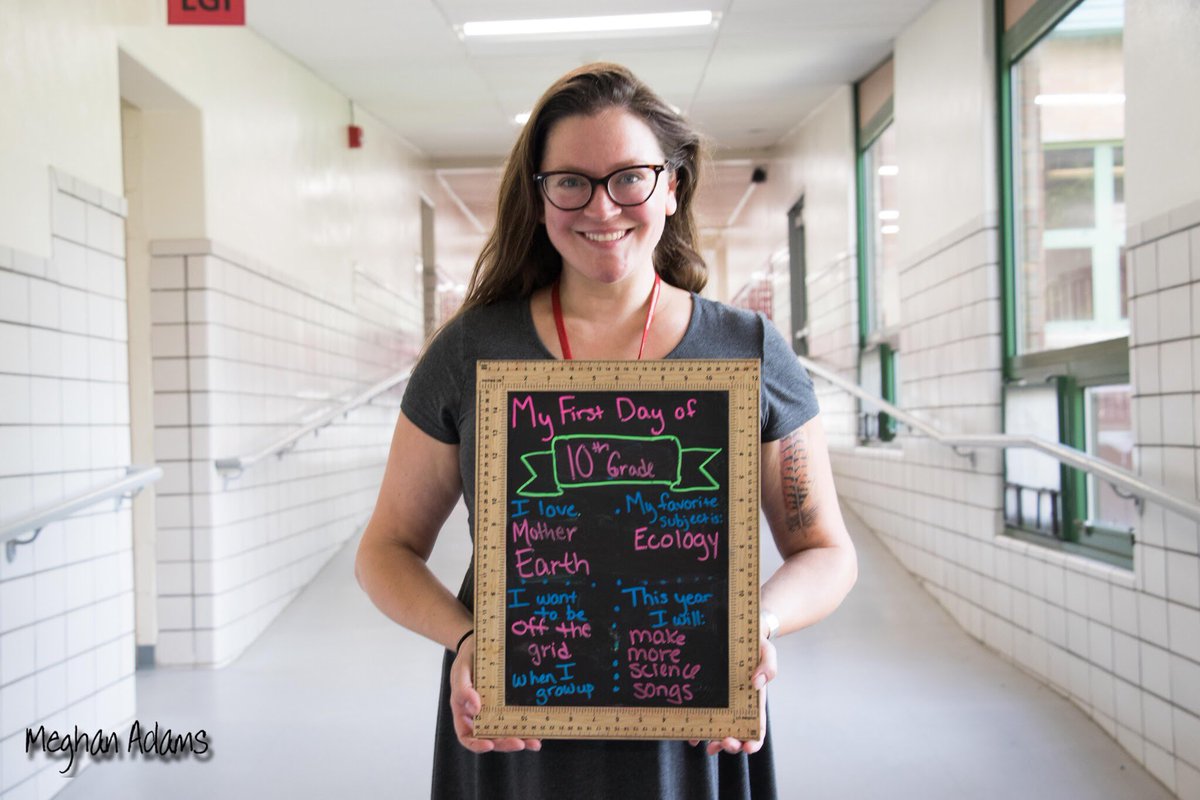 LGI
My First Day of
10th Grade
I love
Mother
Earth
My favorite
subject is:
Ecology
I want
to be
off the
grid
when I
grow up
This year
I will:
make
more
science
songs
Meghan Adams